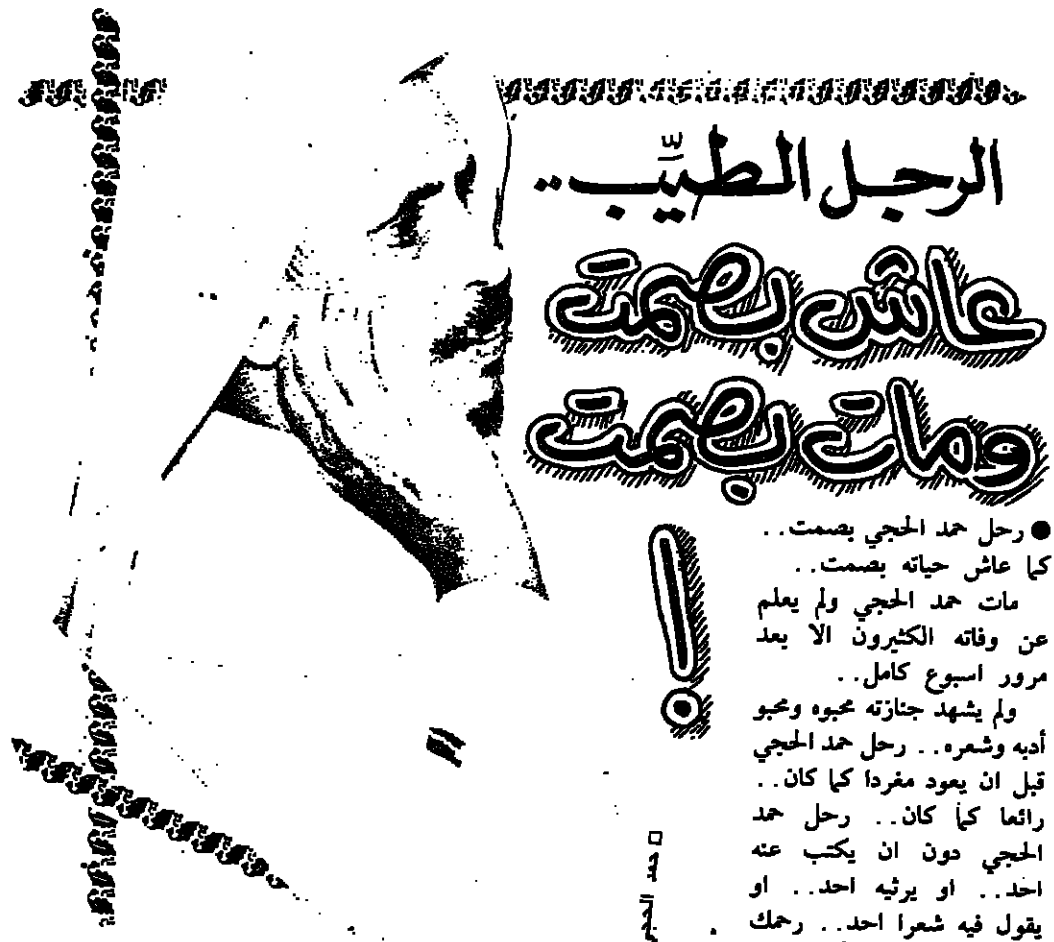 الرجل الطيّب..
عاش بصمت
ومات بصمت
!
● رحل حمد الحجي بصمت..
كما عاش حياته بصمت..
مات حمد الحجي ولم يعلم
عن وفاته الكثيرون الا بعد
مرور اسبوع كامل..
ولم يشهد جنازته محبوه ومحبو
أدبه وشعره.. رحل حمد الحجي
قبل ان يعود مغردا كما كان..
رائعا كما كان.. رحل حمد
الحجي دون ان يكتب عنه
احد.. او يرثيه احد.. او
يقول فيه شعرا احد.. رحمك
□ حمد الحجي